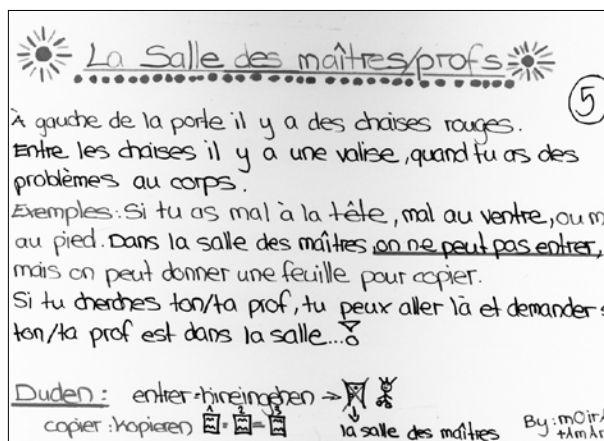 La Salle des maîtres/profs
5
À gauche de la porte il y a des chaises rouges.
Entre les chaises il y a une valise, quand tu as des
problèmes au corps.
Exemples: Si tu as mal à la tête, mal au ventre, ou m
au pied. Dans la salle des maîtres on ne peut pas entrer,
mais on peut donner une feuille pour copier.
Si tu cherches ton/ta prof, tu peux aller là et demander s
ton/ta prof est dans la salle...
Duden: entrer=hineingehen →
copier: kopieren 1 = 2 = 3
la salle des maîtres
By: mOirA